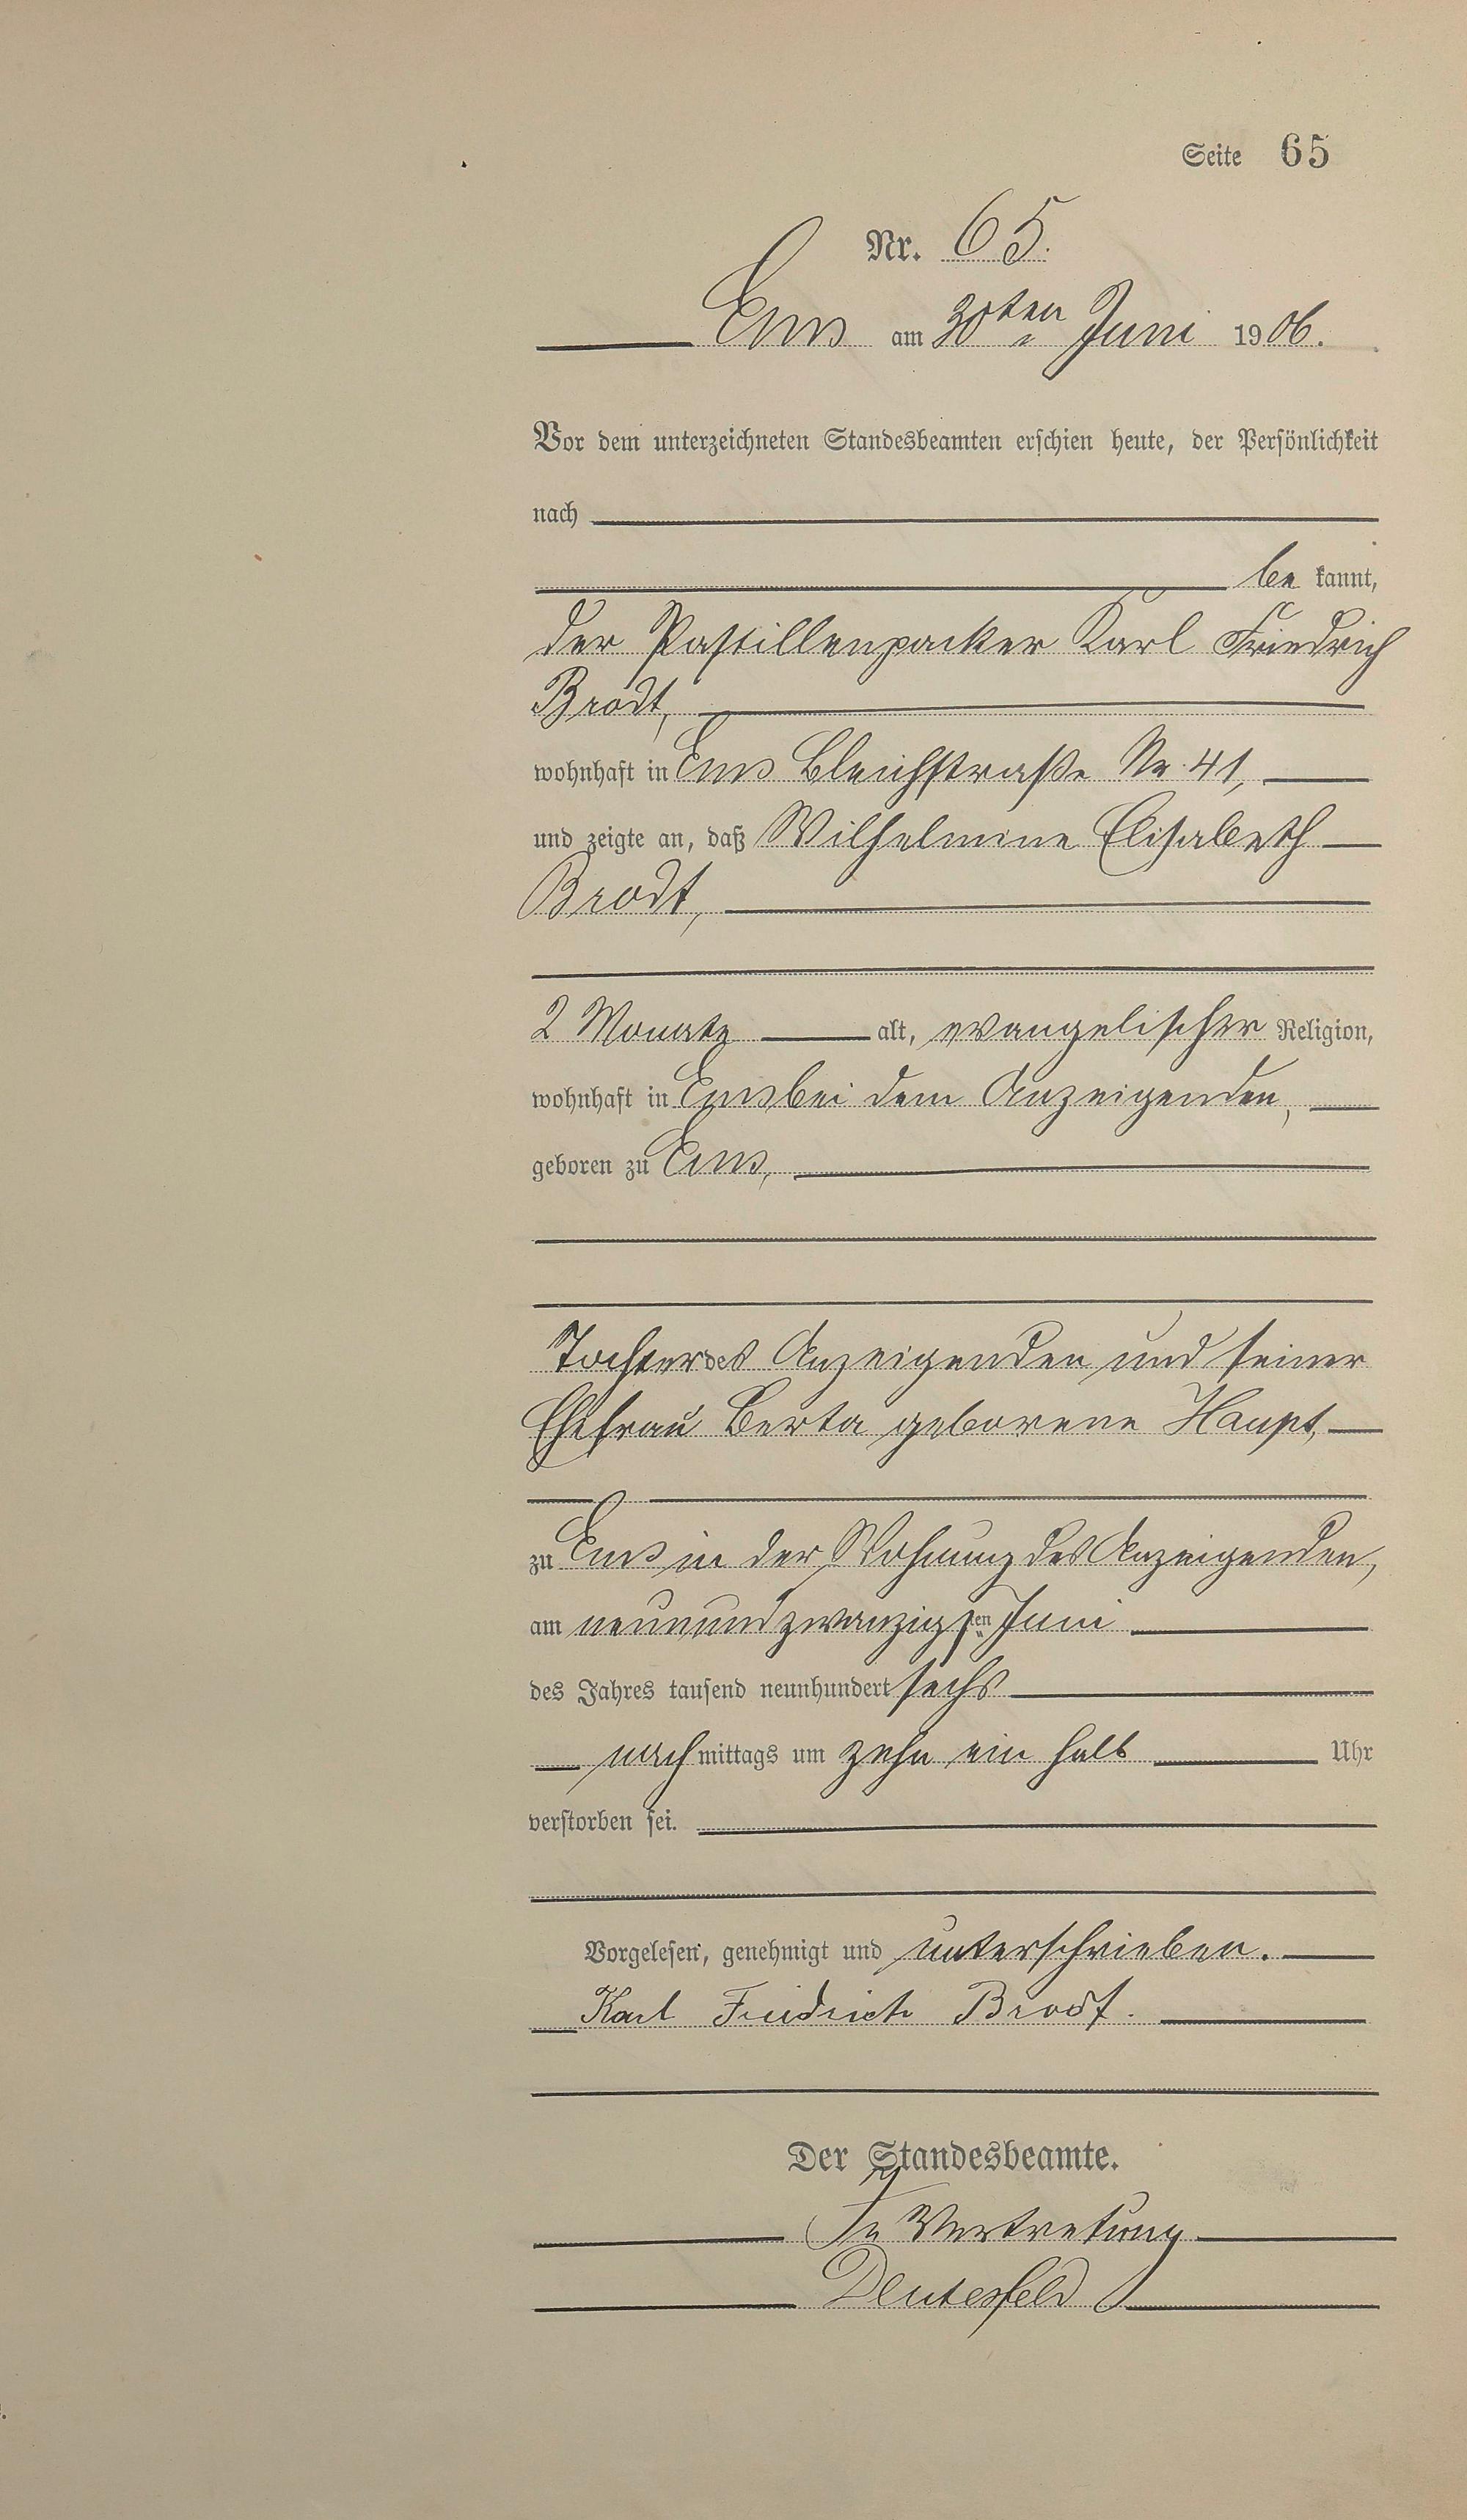 Seite 65
Nr. 65.
Ems am 30ten Juni 1906.
Vor dem unterzeichneten Standesbeamten erschien heute, der Persönlichkeit
nach
be kannt,
der Pastillenpacker Karl Friedrich
Brodt,
wohnhaft in Ems Bleichstraße Nr. 41,
und zeigte an, daß Wilhelmine Elisabeth
Brodt,
2 Monate alt, evangelischer Religion,
wohnhaft in Ems bei dem Anzeigenden,
geboren zu Ems,
Tochter des Anzeigenden und seiner
Ehefrau Berta geborene Haupt,
zu Ems in der Wohnung des Anzeigenden,
am neunundzwanzigsten Juni
des Jahres tausend neunhundert sechs
nach mittags um zehn ein halb Uhr
verstorben sei.
Vorgelesen, genehmigt und unterschrieben.
Karl Friedrich Brodt.
Der Standesbeamte.
In Vertretung